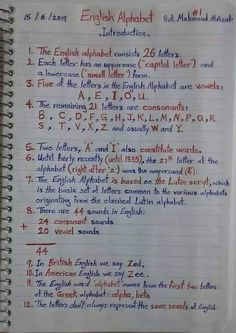 15/6/2019 English Alphabet #1
Introduction.
1. The English alphabet consists 26 letters.
2. Each letter has an uppercase ("capital letter") and
a lowercase ("small letter") form.
3. Five of the letters in the English Alphabet are vowels:
A, E, I, O, U.
4. The remaining 21 letters are consonants:
B, C, D, F, G, H, J, K, L, M, N, P, Q, R
S, T, V, X, Z and usually W and Y.
5. Two letters, 'A' and 'I' also constitute words.
6. Until fairly recently (until 1835), the 27th letter of the
alphabet (right after 'z') was the ampersand (&).
7. The English Alphabet is based on the Latin script, which
is the basic set of letters common to the various alphabets
originating from the classical Latin alphabet.
8. There are 44 sounds in English:
+ 24 consonant sounds
20 vowel sounds
44
9. In British English we say Zed.
10. In American English we say Zee.
11. The English word 'alphabet' comes from the first two letters
of the Greek alphabet: alpha, beta
12. The letters don't always represent the same sounds of English.